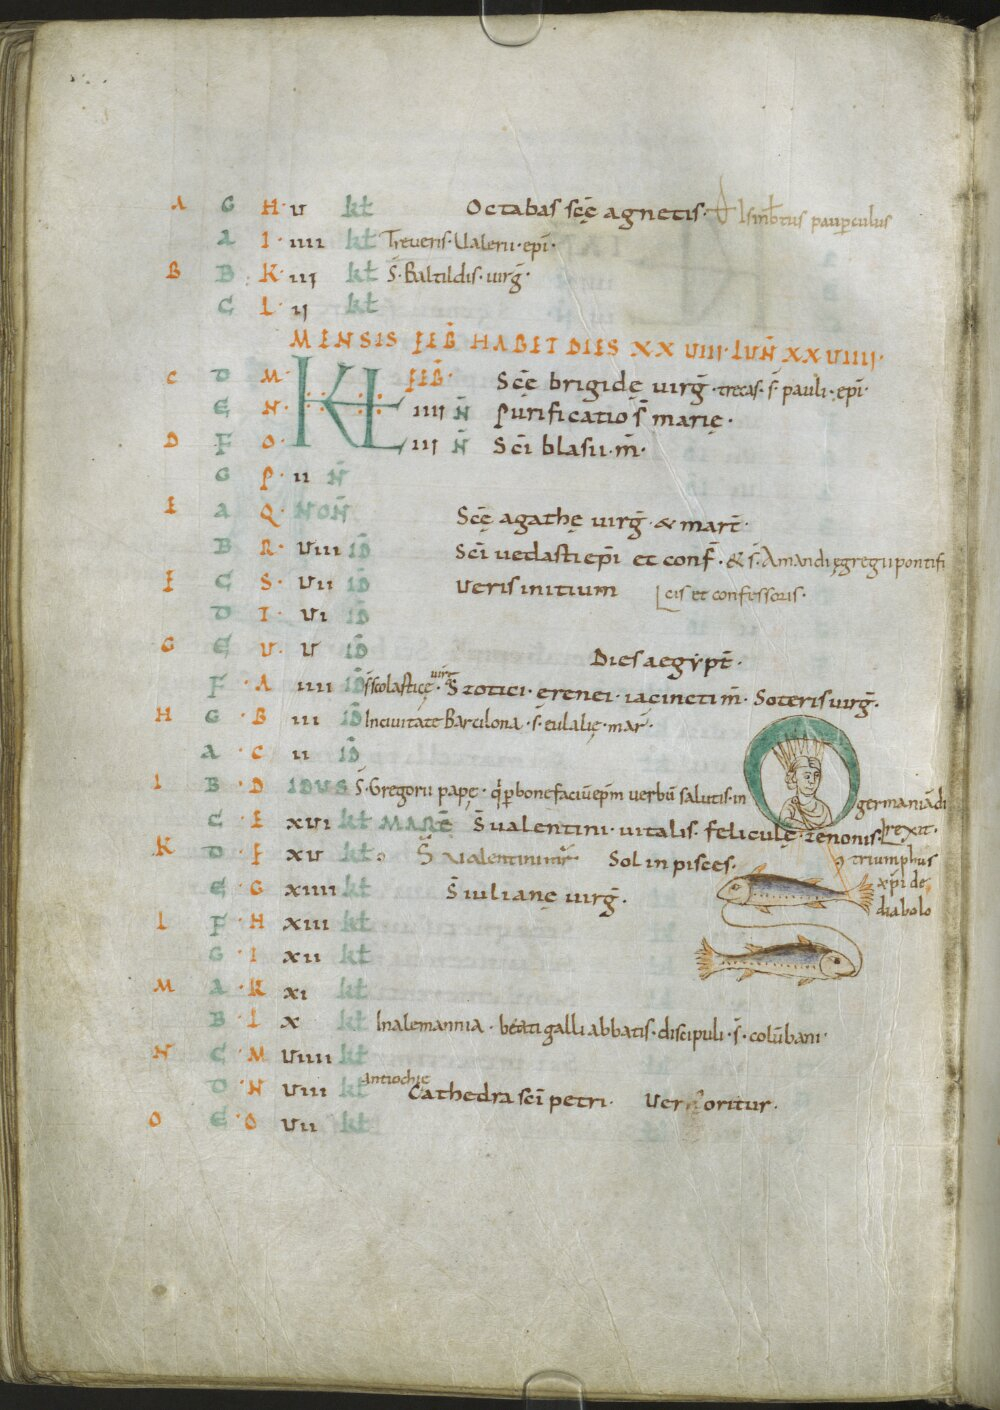 A G H· v kł Octabas scę agnetis·
A I· iiii kł Treveris· Ualerii· epi·
B B· K· iij kł S̄· Baltildis· uirḡ·
C L· ij kł
MENSIS FEB̄ HABET DIES XX VIIII· LUÑ XX VIIII·
C D M· KL FEB̄· Scę brigidę uirḡ· trecas· s̄· pauli· epi·
E N· iiii Ñ purificatio s̄ marię·
D F O· iij Ñ Sci blasii· m̄·
G P· ii Ñ
E A Q· NOÑ Scę agathę uirḡ· & mart̄·
B R· viii ID Sci uedasti epi et conf̄· & s̄· Amandi ęgregii pontifi
F C S· vii ID veris initium cis et confessoris·
D T· vi ID
G E U· v ID Dies aegypt̄·
F · A iiii ID s̄ scolasticę· uirḡ S̄ zotici· ęrenei· iacincti m̄· Soteris uirḡ·
H G · B iii ID In ciuitate Barcilona· s̄· eulalię· mar̄·
A · C ii ID
I B · D IDUS S̄· Gregorii papę· q̇ p bonefaciū ep̄m uerbū salutis· in germaniā di
C · E xvi kł MARĘ S̄ ualentini· uitalis· feliculę· zenonis· rexit·
K D · F xv kł S̄ ualentini Sol in pisces· triumphus
E · G xiiii kł S̄ iulianę uirḡ· xp̄i de diabolo
L F · H xiii kł
G · I xii kł
M A · K xi kł
B · L x kł In alemannia· beati galli abbatis· discipuli· s̄· colūbani·
N C · M viiii kł
D · N viii kł antiochię Cathedra sci petri· Ver oritur·
O E · O vii kł